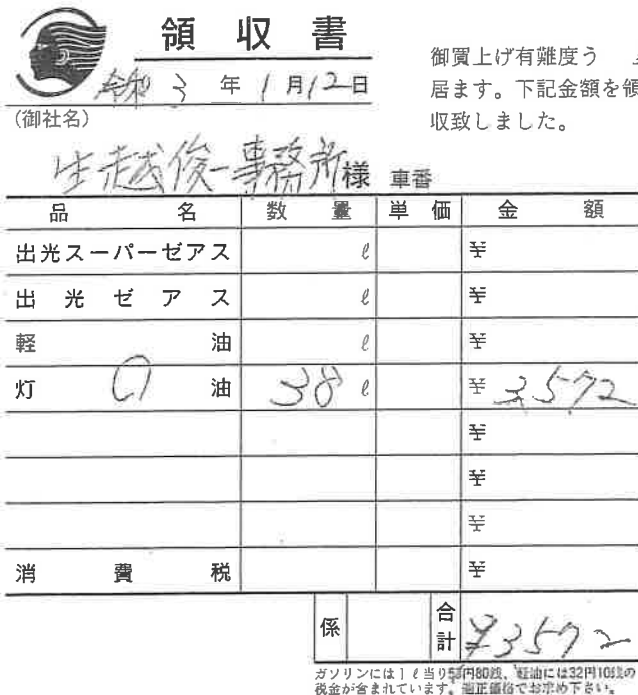 領収書
令和3年1月12日
御買上げ有難度う
居ます。下記金額を領
収致しました。
(御社名)
生越俊一事務所様 車番
品名 数量 単価 金額
出光スーパーゼアス ℓ ¥
出光ゼアス ℓ ¥
軽油 ℓ ¥
灯油 38 ℓ ¥3572
¥
¥
¥
消費税 ¥
係 合計 ¥3572
ガソリンには1ℓ当り53円80銭、軽油には32円10銭の
税金が含まれています。適正価格でお求め下さい。